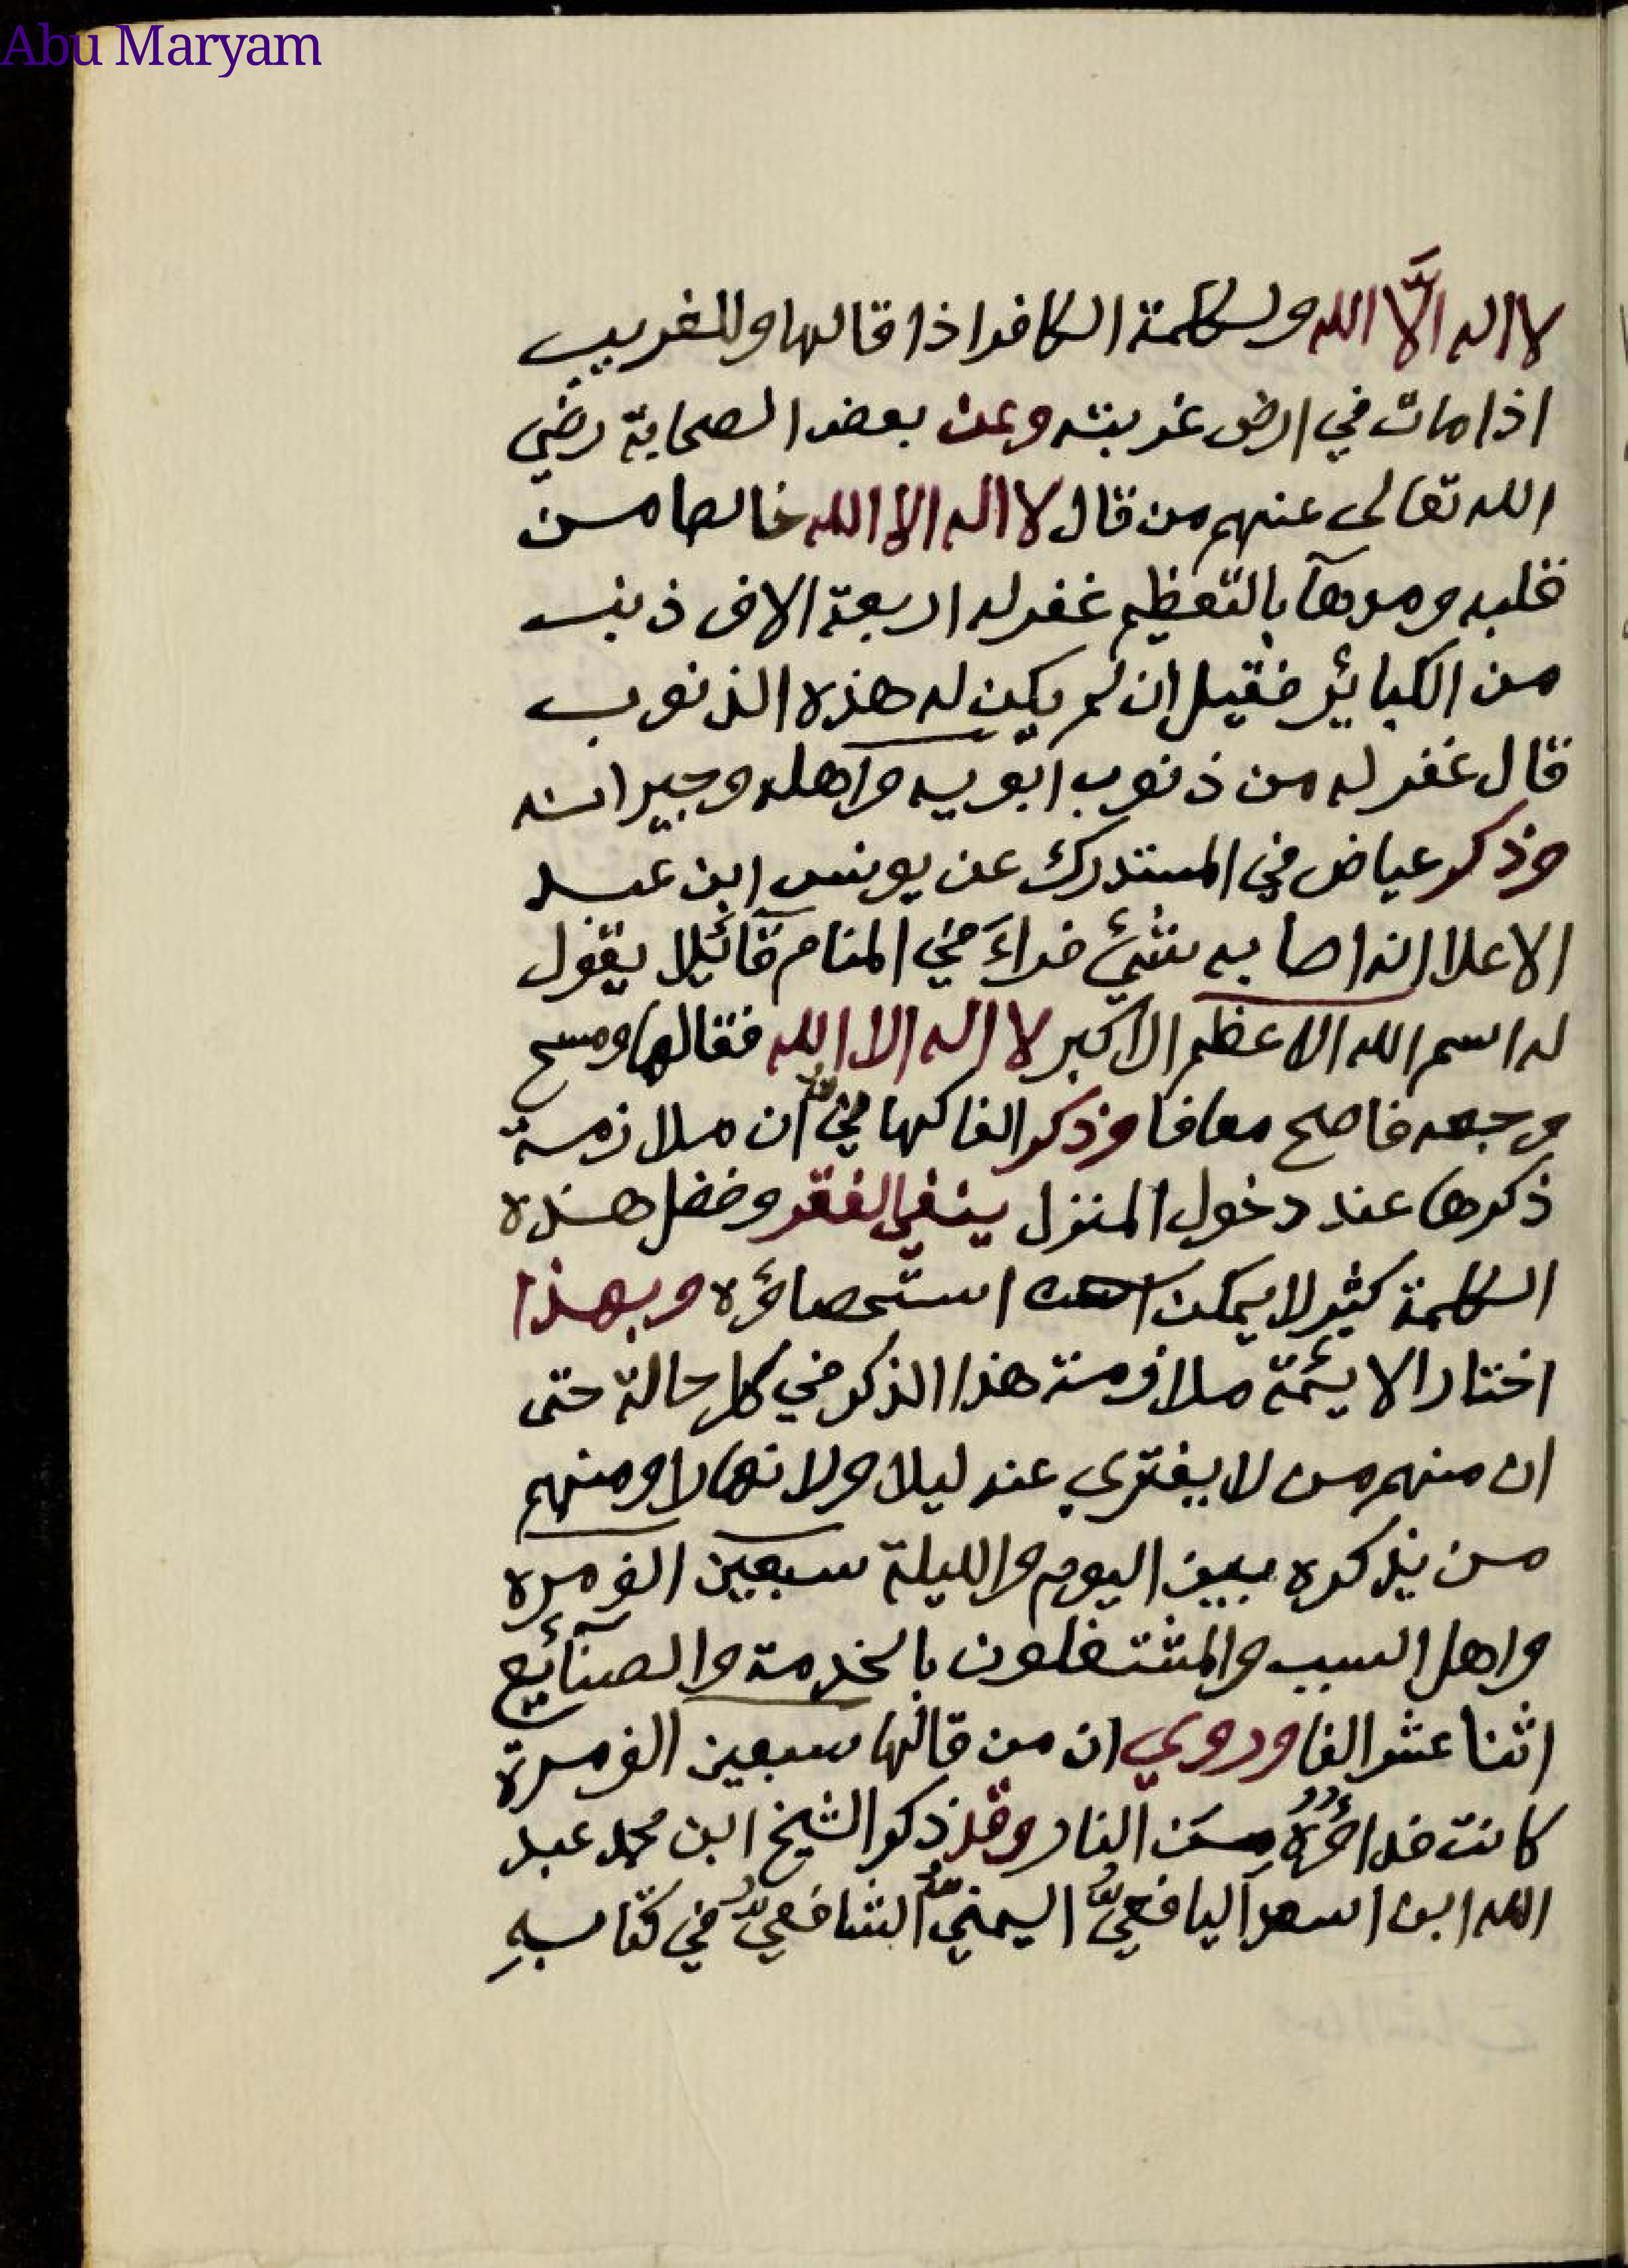 Abu Maryam
لا اله الّا الله ولكلمة الكافر اذا قالها وللغريب
اذا مات في ارض غربته وعن بعض الصحابة رضي
الله تعالى عنهم من قال لا اله الا الله خالصا من
قلبه ومدهآ بالتعظيم غفر له اربعة الاف ذنب
من الكبائر فقيل ان لم يكن له هذه الذنوب
قال غفر له من ذنوب ابويه واهله وجيرانه
وذكر عياض في المستدرك عن يونس ابن عبد
الاعلا انه اصابه شيئ فراءَ في المنام قآئيلا يقول
له اسم الله الاعظم الاكبر لا اله الا الله فقالها ومسح
وجهه فاصح معافا وذكر الفاكهاني ان ملازمة
ذكرها عند دخول المنزل ينفي الفقر وفضل هذه
الكلمة كثير لا يمكن استحصاؤه وبهذا
اختار الايئمة ملازمة هذا الذكر في كل حالة حتى
ان منهم من لا يفتري عنه ليلا ولا نهارا ومنهم
من يذكره بين اليوم والليلة سبعين الف مره
واهل السبب والمشتغلون بالخدمة والصنآئيع
اثنا عشر الفا وروي ان من قالها سبعين الف مرة
كانت فداؤُهُ مِنَ النار وقد ذكر الشيخ ابن محمد عبد
الله ابن اسعد اليافعي اليمني الشافعي في كتابهِ